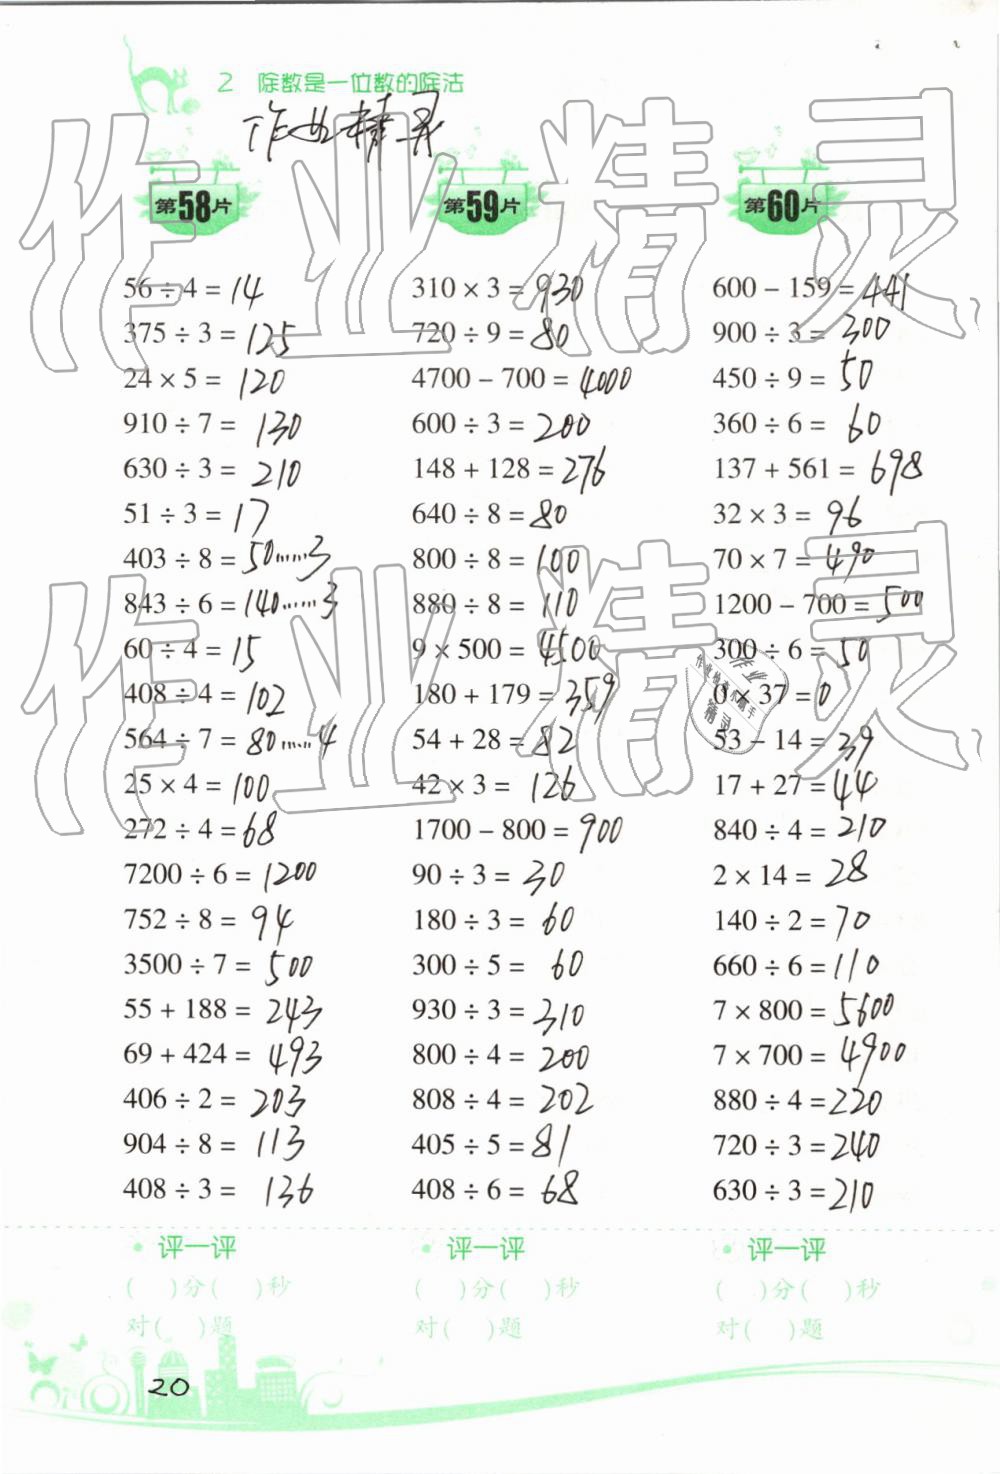 2 除数是一位数的除法
作业精灵
第58片
56 ÷ 4 = 14
375 ÷ 3 = 125
24 × 5 = 120
910 ÷ 7 = 130
630 ÷ 3 = 210
51 ÷ 3 = 17
403 ÷ 8 = 50……3
843 ÷ 6 = 140……3
60 ÷ 4 = 15
408 ÷ 4 = 102
564 ÷ 7 = 80……4
25 × 4 = 100
272 ÷ 4 = 68
7200 ÷ 6 = 1200
752 ÷ 8 = 94
3500 ÷ 7 = 500
55 + 188 = 243
69 + 424 = 493
406 ÷ 2 = 203
904 ÷ 8 = 113
408 ÷ 3 = 136
评一评
( )分( )秒
对( )题
第59片
310 × 3 = 930
720 ÷ 9 = 80
4700 − 700 = 4000
600 ÷ 3 = 200
148 + 128 = 276
640 ÷ 8 = 80
800 ÷ 8 = 100
880 ÷ 8 = 110
9 × 500 = 4500
180 + 179 = 359
54 + 28 = 82
42 × 3 = 126
1700 − 800 = 900
90 ÷ 3 = 30
180 ÷ 3 = 60
300 ÷ 5 = 60
930 ÷ 3 = 310
800 ÷ 4 = 200
808 ÷ 4 = 202
405 ÷ 5 = 81
408 ÷ 6 = 68
评一评
( )分( )秒
对( )题
第60片
600 − 159 = 441
900 ÷ 3 = 300
450 ÷ 9 = 50
360 ÷ 6 = 60
137 + 561 = 698
32 × 3 = 96
70 × 7 = 490
1200 − 700 = 500
300 ÷ 6 = 50
0 × 37 = 0
53 − 14 = 39
17 + 27 = 44
840 ÷ 4 = 210
2 × 14 = 28
140 ÷ 2 = 70
660 ÷ 6 = 110
7 × 800 = 5600
7 × 700 = 4900
880 ÷ 4 = 220
720 ÷ 3 = 240
630 ÷ 3 = 210
评一评
( )分( )秒
对( )题
20
作业精灵
作业精灵